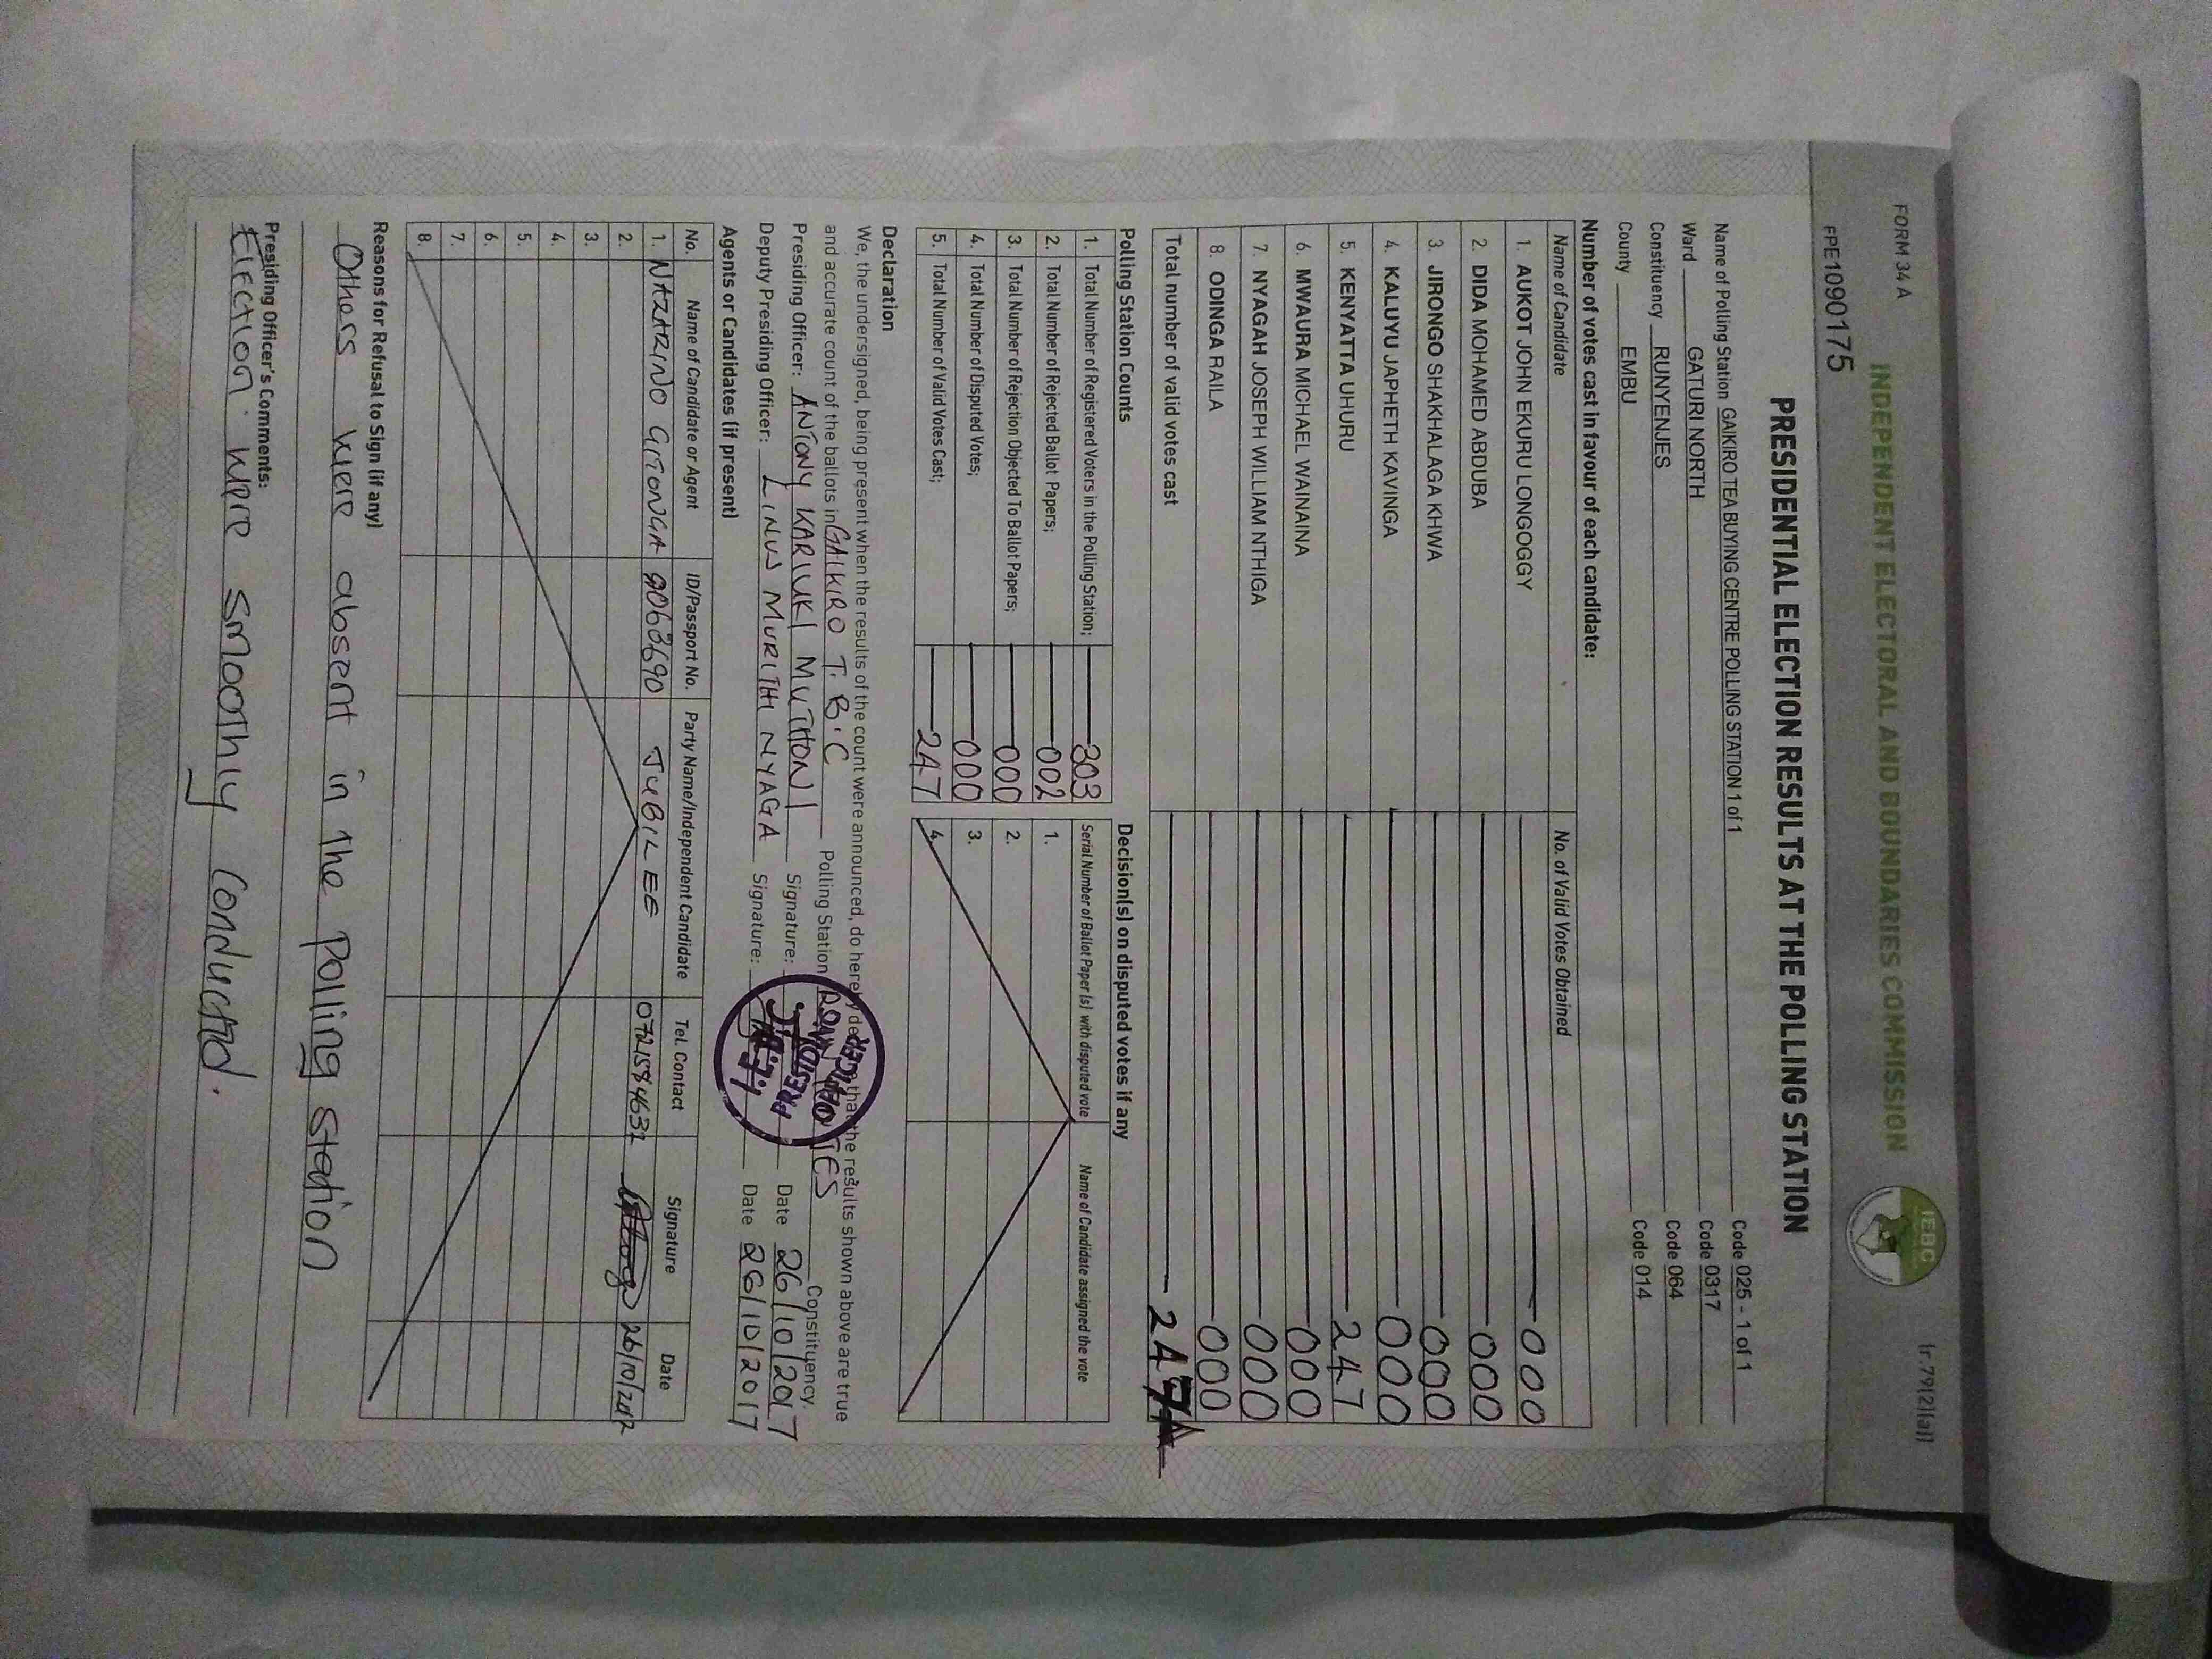 FORM 34 A
[r.79(2)(a)]
INDEPENDENT ELECTORAL AND BOUNDARIES COMMISSION
IEBC
FPE1090175
PRESIDENTIAL ELECTION RESULTS AT THE POLLING STATION
Name of Polling Station GAIKIRO TEA BUYING CENTRE POLLING STATION 1 of 1 Code 025 - 1 of 1
Ward GATURI NORTH Code 0317
Constituency RUNYENJES Code 064
County EMBU Code 014
Number of votes cast in favour of each candidate:
Name of Candidate No. of Valid Votes Obtained
1. AUKOT JOHN EKURU LONGOGGY 000
2. DIDA MOHAMED ABDUBA 000
3. JIRONGO SHAKHALAGA KHWA 000
4. KALUYU JAPHETH KAVINGA 000
5. KENYATTA UHURU 247
6. MWAURA MICHAEL WAINAINA 000
7. NYAGAH JOSEPH WILLIAM NTHIGA 000
8. ODINGA RAILA 000
Total number of valid votes cast 247
Polling Station Counts
1. Total Number of Registered Voters in the Polling Station; 303
2. Total Number of Rejected Ballot Papers; 002
3. Total Number of Rejection Objected To Ballot Papers; 000
4. Total Number of Disputed Votes; 000
5. Total Number of Valid Votes Cast; 247
Decision(s) on disputed votes if any
Serial Number of Ballot Paper (s) with disputed vote Name of Candidate assigned the vote
1.
2.
3.
4.
Declaration
We, the undersigned, being present when the results of the count were announced, do hereby declare that the results shown above are true
and accurate count of the ballots in GAIKIRO T.B.C Polling Station Constituency
Presiding Officer: ANTONY KARIUKI MUTHONI Signature: Date 26/10/2017
Deputy Presiding Officer: LINUS MURITHI NYAGA Signature: Date 26/10/2017
Agents or Candidates (if present)
No. Name of Candidate or Agent ID/Passport No. Party Name/Independent Candidate Tel. Contact Signature Date
1. NAZARINO GITONGA JUBILEE 26/10/2017
2.
3.
4.
5.
6.
7.
8.
Reasons for Refusal to Sign (if any)
Others were absent in the polling station
Presiding Officer's Comments:
Election were smoothly conducted.